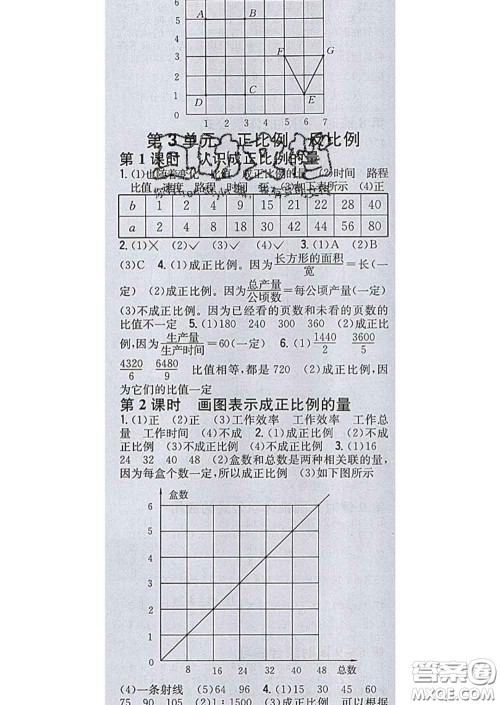 5 A B
4
3 F G
2
1 D C E
0 1 2 3 4 5 6 7
第3单元 正比例、反比例
第1课时 认识成正比例的量
1.(1)也随着变化 比值 成正比例的量 (2)时间 路程
比值 速度 路程 时间 (3)如下表所示 (4)正
b 1 2 4 9 15 21 22 28 40
a 2 4 8 18 30 42 44 56 80
2.(1)× (2)✓ (3)✓ (4)✓ 3.(1)A (2)B
(3)C 4.(1)成正比例。因为长方形的面积/宽=长(一
定) (2)成正比例。因为总产量/公顷数=每公顷产量(一定)
(3)不成正比例。因为已经看的页数和未看的页数的
比值不一定 5.(1)180 240 300 360 (2)成正比
例,因为生产量/生产时间=60(一定) 6.(1)1440/2 3600/5
4320/6 6480/9 比值相等,都是720 (2)成正比例。因
为它们的比值一定
第2课时 画图表示成正比例的量
1.(1)正 (2)正 (3)工作效率 工作效率 工作总
量 工作时间 (4)不成 2.(1)成正比例 (2)不成
正比例 (3)成正比例 (4)不成正比例 3.(1)16
24 32 40 48 (2)盒数和总数是两种相关联的量,
因为每盒个数一定,所以成正比例 (3)如下图所示
盒数
6
5
4
3
2
1
0 8 16 24 32 40 48 总数
(4)一条射线 (5)64 96 2.(1)15 30 45 60
75 90 105 (2)1:1500 (3)成正比例 可以根据
答案圈
MXQE.COM